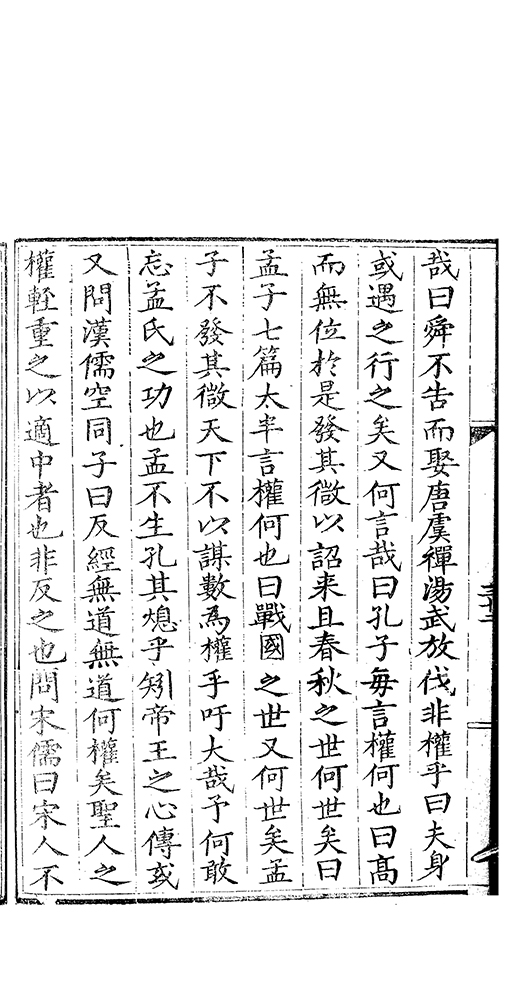 哉曰舜不告而娶唐虞禪湯武放伐非權乎曰夫身
或遇之行之矣又何言哉曰孔子每言權何也曰高
而無位於是發其微以詔来且春秋之世何世矣曰
孟子七篇太半言權何也曰戰國之世又何世矣孟
子不發其微天下不以謀數爲權乎吁大哉予何敢
忘孟氏之功也孟不生孔其熄乎矧帝王之心傳或
又問漢儒空同子曰反經無道無道何權矣聖人之
權輊重之以適中者也非反之也問宋儒曰宋人不